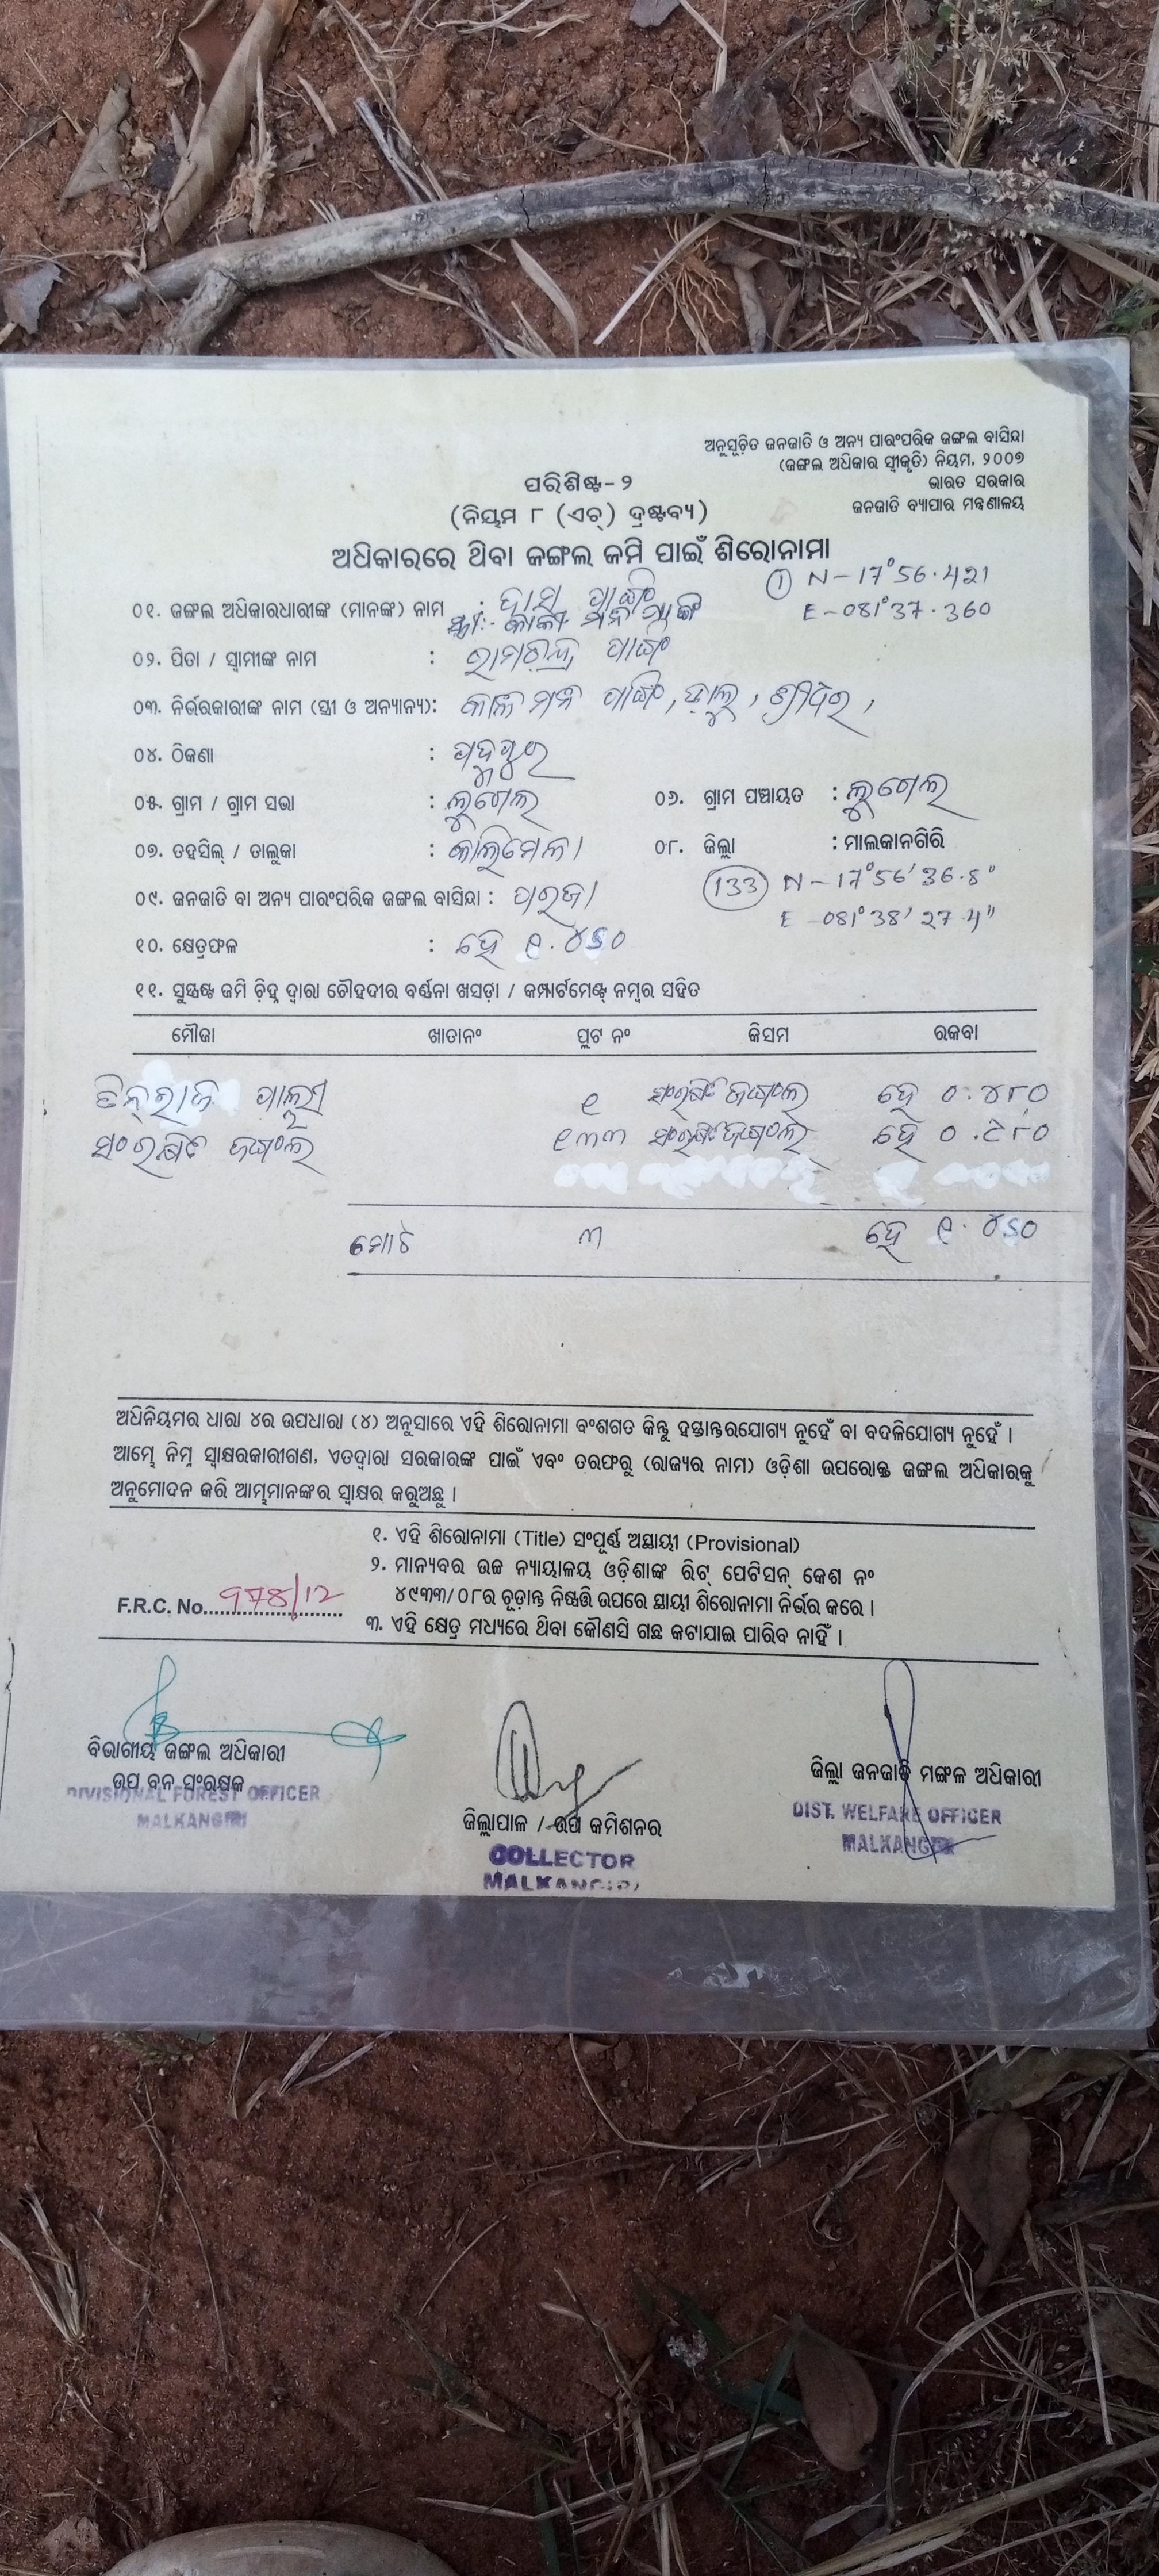 ଅନୁସୂଚିତ ଜନଜାତି ଓ ଅନ୍ୟ ପାରଂପରିକ ଜଙ୍ଗଲ ବାସିନ୍ଦା
(ଜଙ୍ଗଲ ଅଧିକାର ସ୍ୱୀକୃତି) ନିୟମ, ୨୦୦୭
ଭାରତ ସରକାର
ଜନଜାତି ବ୍ୟାପାର ମନ୍ତ୍ରଣାଳୟ
ପରିଶିଷ୍ଟ-୨
(ନିୟମ ୮ (ଏଚ୍) ଦ୍ରଷ୍ଟବ୍ୟ)
ଅଧିକାରରେ ଥିବା ଜଙ୍ଗଲ ଜମି ପାଇଁ ଶିରୋନାମା
① N-17°56.421
E-081°37.360
୦୧. ଜଙ୍ଗଲ ଅଧିକାରଧାରୀଙ୍କ (ମାନଙ୍କ) ନାମ :
୦୨. ପିତା / ସ୍ୱାମୀଙ୍କ ନାମ : ରାମଚନ୍ଦ୍ର ପାଙ୍ଗି
୦୩. ନିର୍ଭରକାରୀଙ୍କ ନାମ (ସ୍ତ୍ରୀ ଓ ଅନ୍ୟାନ୍ୟ):
୦୪. ଠିକଣା : ପଦ୍ମପୁର
୦୫. ଗ୍ରାମ / ଗ୍ରାମ ସଭା : ଲୁଗେଲ ୦୬. ଗ୍ରାମ ପଞ୍ଚାୟତ : ଲୁଗେଲ
୦୭. ତହସିଲ୍ / ତାଲୁକା : କାଲିମେଳା ୦୮. ଜିଲ୍ଲା : ମାଲକାନଗିରି
(133) N-17°56'36.8"
୦୯. ଜନଜାତି ବା ଅନ୍ୟ ପାରଂପରିକ ଜଙ୍ଗଲ ବାସିନ୍ଦା : ପରଜା
E-081°38'27.4"
୧୦. କ୍ଷେତ୍ରଫଳ : ହେ ୧.୪୬୦
୧୧. ସୁସ୍ପଷ୍ଟ ଜମି ଚିହ୍ନ ଦ୍ୱାରା ଚୌହଦୀର ବର୍ଣ୍ଣନା ଖସଡ଼ା / କମ୍ପାର୍ଟମେଣ୍ଟ୍ ନମ୍ବର ସହିତ
ମୌଜା ଖାତାନଂ ପ୍ଲଟ ନଂ କିସମ ରକବା
୧ ସଂରକ୍ଷିତ ଜଙ୍ଗଲ ହେ ୦.୪୮୦
ସଂରକ୍ଷିତ ଜଙ୍ଗଲ ୧୩୩ ସଂରକ୍ଷିତ ଜଙ୍ଗଲ ହେ ୦.୯୮୦
ମୋଟ ୩ ହେ ୧.୪୬୦
ଅଧିନିୟମର ଧାରା ୪ର ଉପଧାରା (୪) ଅନୁସାରେ ଏହି ଶିରୋନାମା ବଂଶଗତ କିନ୍ତୁ ହସ୍ତାନ୍ତରଯୋଗ୍ୟ ନୁହେଁ ବା ବଦଳିଯୋଗ୍ୟ ନୁହେଁ ।
ଆମ୍ଭେ ନିମ୍ନ ସ୍ୱାକ୍ଷରକାରୀଗଣ, ଏତଦ୍ୱାରା ସରକାରଙ୍କ ପାଇଁ ଏବଂ ତରଫରୁ (ରାଜ୍ୟର ନାମ) ଓଡ଼ିଶା ଉପରୋକ୍ତ ଜଙ୍ଗଲ ଅଧିକାରକୁ
ଅନୁମୋଦନ କରି ଆମ୍ଭମାନଙ୍କର ସ୍ୱାକ୍ଷର କରୁଅଛୁ ।
୧. ଏହି ଶିରୋନାମା (Title) ସଂପୂର୍ଣ୍ଣ ଅସ୍ଥାୟୀ (Provisional)
୨. ମାନ୍ୟବର ଉଚ୍ଚ ନ୍ୟାୟାଳୟ ଓଡ଼ିଶାଙ୍କ ରିଟ୍ ପେଟିସନ୍ କେଶ ନଂ
୪୯୩୩/୦୮ର ଚୂଡ଼ାନ୍ତ ନିଷ୍ପତ୍ତି ଉପରେ ସ୍ଥାୟୀ ଶିରୋନାମା ନିର୍ଭର କରେ ।
F.R.C. No. 978/12
୩. ଏହି କ୍ଷେତ୍ର ମଧ୍ୟରେ ଥିବା କୌଣସି ଗଛ କଟାଯାଇ ପାରିବ ନାହିଁ ।
ବିଭାଗୀୟ ଜଙ୍ଗଲ ଅଧିକାରୀ
ଉପ ବନ ସଂରକ୍ଷକ
DIVISIONAL FOREST OFFICER
MALKANGIRI
ଜିଲ୍ଲାପାଳ / ଉପ କମିଶନର
COLLECTOR
MALKANGIRI
ଜିଲ୍ଲା ଜନଜାତି ମଙ୍ଗଳ ଅଧିକାରୀ
DIST. WELFARE OFFICER
MALKANGIRI